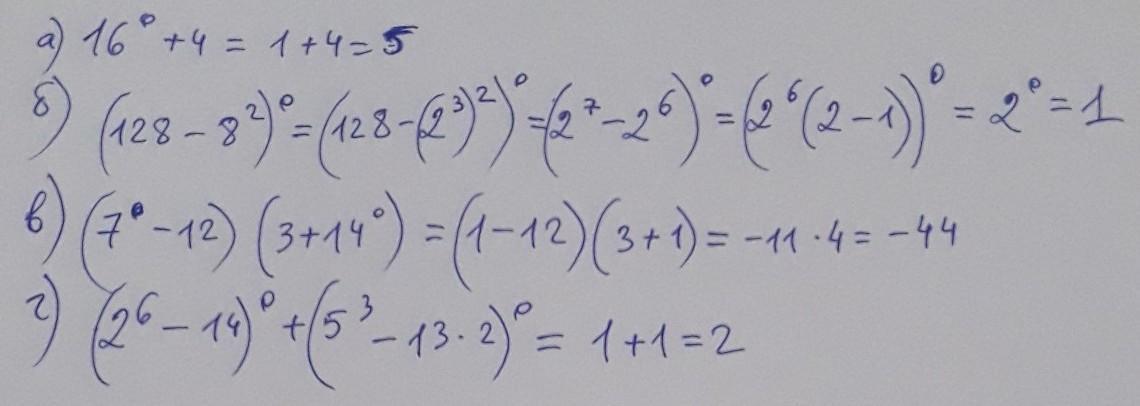 а) 16⁰ + 4 = 1 + 4 = 5
б) (128 − 8²)⁰ = (128 − (2³)²)⁰ = (2⁷ − 2⁶)⁰ = (2⁶(2 − 1))⁰ = 2⁰ = 1
в) (7⁰ − 12) (3 + 14⁰) = (1 − 12)(3 + 1) = −11 · 4 = −44
г) (2⁶ − 14)⁰ + (5³ − 13 · 2)⁰ = 1 + 1 = 2